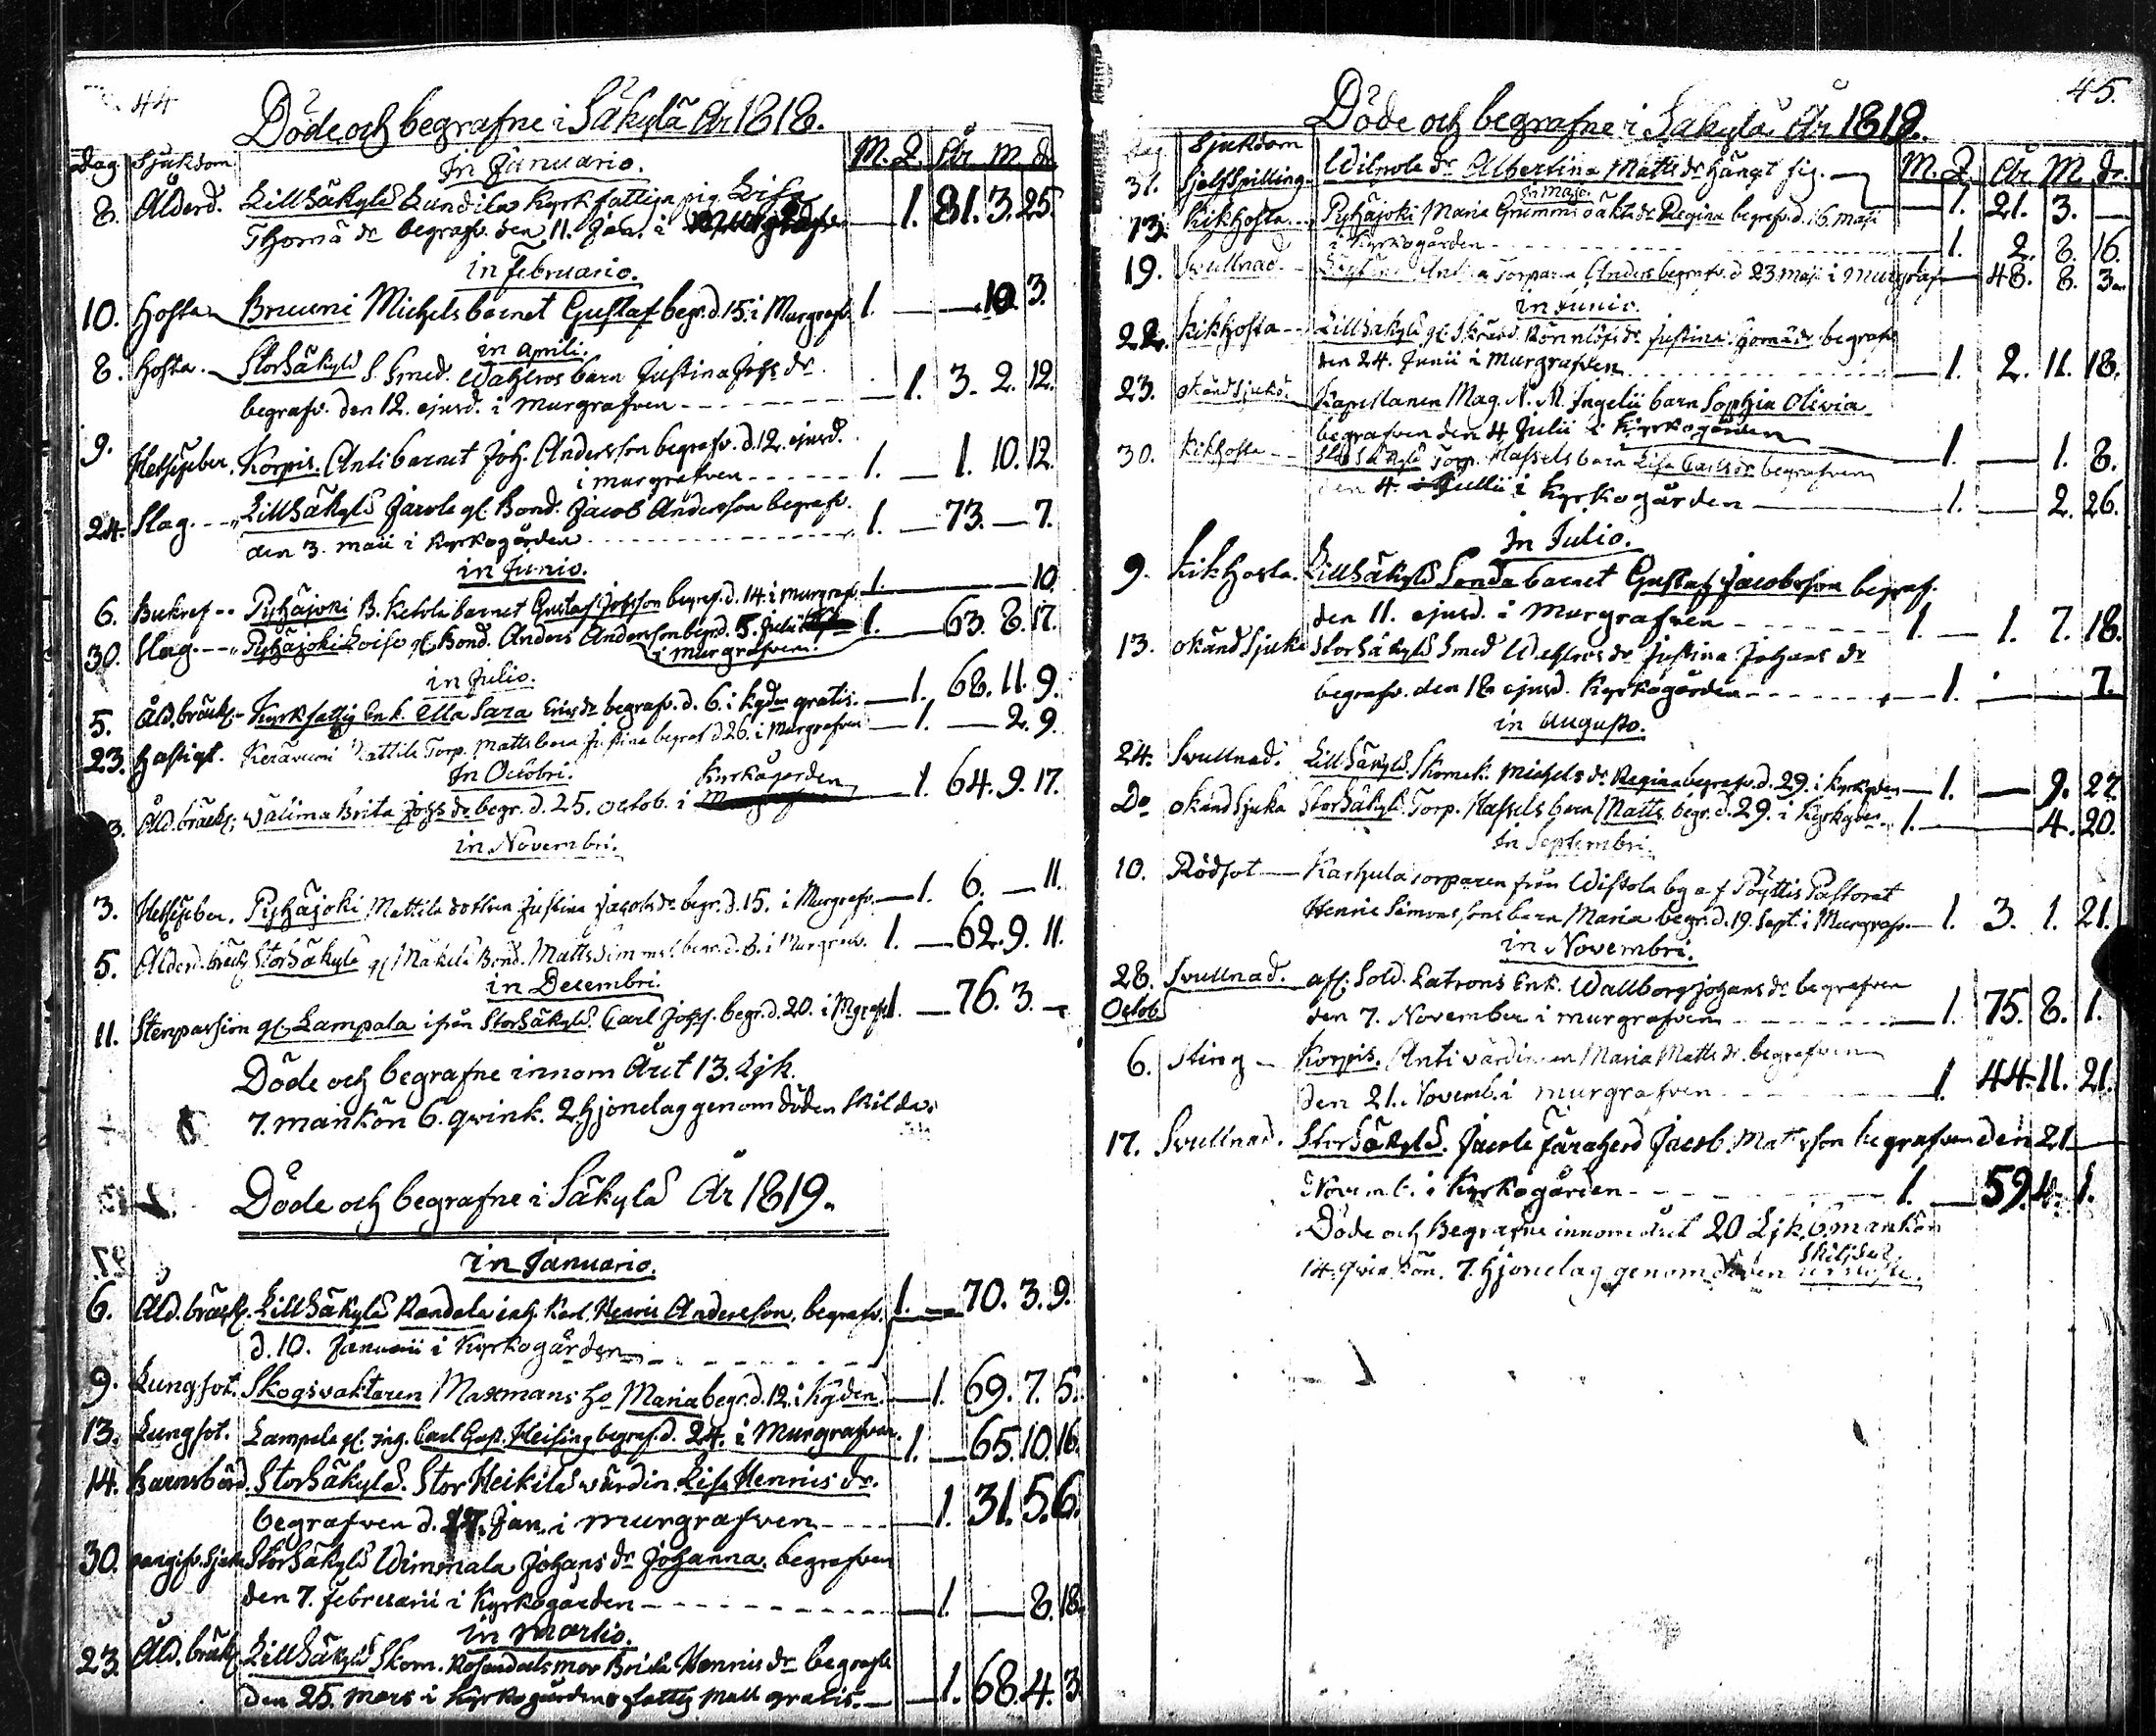 44
Döde och begrafne i Säkylä År 1818.
Dag Sjukdom M. Q. År. M. dr.
In Januario.
8. Ålderd. Lillsäkylä Lundila Kyrkfattiga pig Lisa
Thoma dr begrafv. den 11. Jan. i 1. 81. 3. 25.
in Februario.
10. Hosta Bruuni Michels barnet Gustaf begr. d. 15. i Murgrafv. 1. 10. 3.
in Aprili.
8. Hosta. Storsäkylä S. Smed. Wahlros barn Justina Johs dr
begrafv. den 12. ejusd. i murgrafven 1. 3. 2. 12.
9. Hetsfeber. Korpis. Anti barnet Joh. Andersson begrafv. d. 12. ejusd.
i murgrafven 1. 1. 10. 12.
24. Slag. Lillsäkylä Jaвola gl. Bond. Jacob Andersson begrafv.
den 3. maii i Kyrkogården 1. 73. 7.
in Junio.
6. Bukref Pyhäjoki B. Ketola barnet Gustaf Johsson begraf. d. 14. i murgraf. 1. 10.
30. Slag. Pyhäjoki gl. Bond. Anders Andersson begr. d. 5. Julii 1. 63. 8. 17.
i murgrafven.
in Julio.
5. Åld. bräckl. Kyrkfattig Enk. Ella Sara Ericsdr begrafv. d. 6. i kgdn gratis. 1. 68. 11. 9.
23. Hastigt. Kerävuori Mattila Torp. Matts barn Justina begraf d 26. i Murgrafven 1. 2. 9.
In Octobri. Kyrkågården
3. Åld. bräckl. Välima Brita Johs dr begr. d. 25. Octob. i 1. 64. 9. 17.
in Novembri.
3. Hetsfeber. Pyhäjoki Mattila dottren Justina Jacobs dr begr. d. 15. i Murgrafv. 1. 6. 11.
5. Ålderd. bräckl. Storsäkylä gl Mäkilä Bond. Matts Simonss. begr. d. 8. i Murgrafv. 1. 62. 9. 11.
in Decembri.
11. Stenpassion gl. Lampala ifrån Storsäkylä Carl Johss. begr. d. 20. i Mgraf 1. 76. 3.
Döde och begrafne innom Året 13. Lik.
7. mankön 6. qvink. 2. hjonelag genom döden skildes
Döde och begrafne i Säkylä År 1819.
in Januario.
6. Åld. bräckl. Lillsäkylä Randala inh. Karl. Henric Andersson. begrafv. 1. 70. 3. 9.
d. 10. Januarii i Kyrkogården
9. Lungsot. Skogsvaktaren Maxmans ho Maria begr. d. 12. i Kgden. 1. 69. 7. 5.
13. Lungsot. Lampala gl. Carl Gust. Heising begraf. d. 24. i Murgrafven. 1. 65. 10. 16.
14. Barnsbörd. Storsäkylä. Stor Heikilä värdin. Lisa Henrics dr.
begrafven d. Jan. i murgrafven 1. 31. 5. 6.
30. oangifv. Sjukd Storsäkylä Wimmala Johans dr Johanna. begrafven
den 7. Februarii i Kyrkogården 1. 8. 18.
in Martio.
23. Åld. bräckl. Lillsäkylä Skom. Rosendals mor Brita Henrics dr begrafv
den 25. Mars i Kyrkogården fattig Mall gratis. 1. 68. 4. 3.
45.
Döde och begrafne i Säkylä År 1819.
Dag Sjukdom M. Q. År M. dr.
31. Sjelfspilling. Wilwola dr Albertina Matts dr hängt sig. 1. 21. 3.
in Majo.
13. Kikhosta Pyhäjoki Maria Grimms oäkta dr Regina begrafv. d. 16. maji
i Kyrkogården 1. 2. 8. 16.
19. Svullnad. Torparen Anders begrafv. d 23 maji i murgraf 48. 8. 3.
in Junio.
22. Kikhosta Lillsäkylä gl. Skrädd. Rönnlöfs dr Justina Thomæ dr begrafv
den 24. Junii i murgrafven 1. 2. 11. 18.
23. okänd sjukd. Kapellanen Mag. N. M. Ingelii barn Sophia Olivia
begrafven den 4 Julii i Kyrkogården 1. 1. 8.
30. Kikhosta Storsäkylä Torp. Hassels barn Lisa Carlsdr begrafven
den 4. Julii i Kyrkogården 1. 2. 26.
In Julio.
9. Kikhosta. Lillsäkylä Sonda barnet Gustaf Jacobsson begraf.
den 11. ejusd. i Murgrafven 1. 1. 7. 18.
13. okänd Sjuka Storsäkylä Smed Wahlros dr Justina Johans dr
begrafv. den 18 ejusd. Kyrkogården 1. 7.
in Augusto.
24. Svullnad. Lillsäkylä. Skomak. Michels dr Regina begrafv. d. 29. i Kyrkgden 1. 9. 27.
Do okänd Sjuka Storsäkylä. Torp. Hassels barn Matts begr. d. 29. i Kyrkgden. 1. 4. 20.
In Septembri.
10. Rödsot Karhula torparen från Wistola by af Pöyttis Pastorat
Henric Simonssons barn Maria begr. d. 19. Sept. i Murgrafv. 1. 3. 1. 21.
in Novembri.
28. Svullnad. afs. Sold. Latrons Enk. Wallborg Johans dr begrafven
Octob. den 7. November i murgrafven 1. 75. 8. 1.
6. Sting Korpis. Anti värdinnan Maria Matts dr. begrafven
den 21. Novemb. i murgrafven 1. 44. 11. 21.
17. Svullnad. Storsäkylä. Jacob Mattsson begrafven den 21
Novemb. i Kyrkogården 1. 59. 4. 1.
Döde och Begrafne innom året 20 Lik, 6. mankön
skiljde.
14. qvinkön. 7. hjonelag genom döden